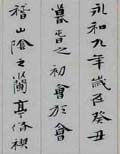 永和九年歲在癸丑
暮春之初會於會
稽山陰之蘭亭脩禊